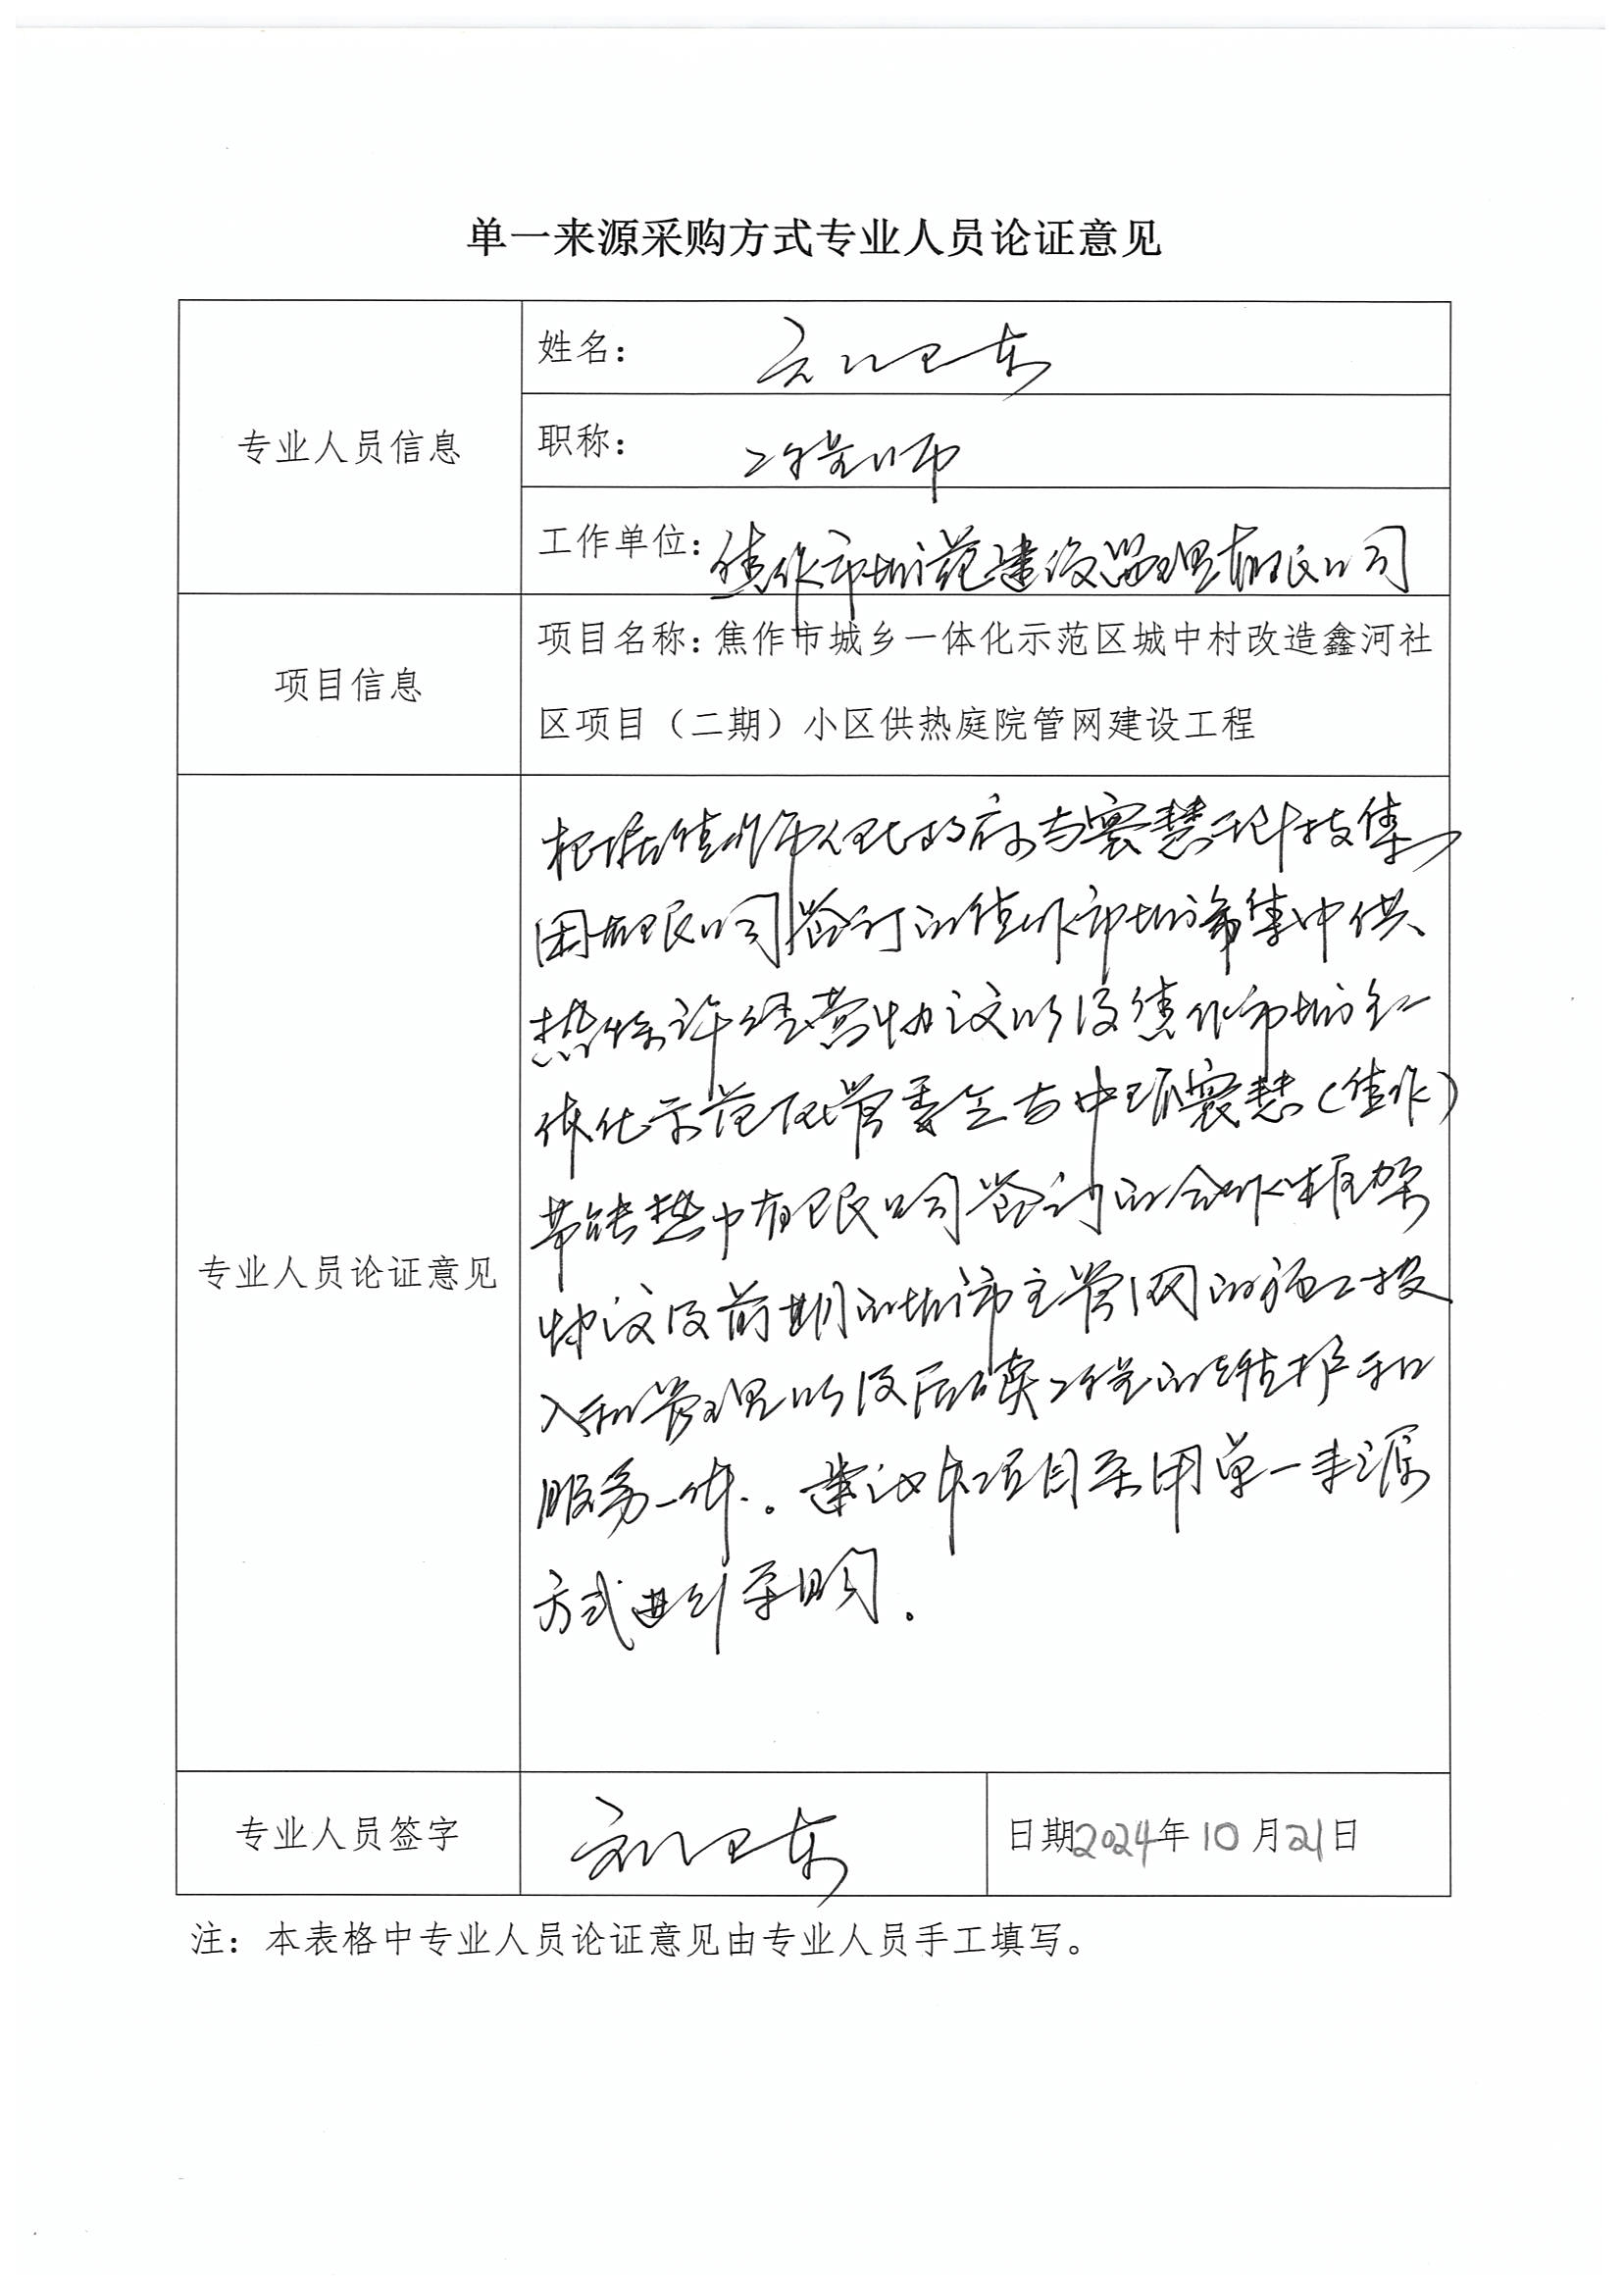 单一来源采购方式专业人员论证意见
专业人员信息
姓名： 刘卫东
职称： 工程师
工作单位：焦作市规范建设监理有限公司
项目信息
项目名称：焦作市城乡一体化示范区城中村改造鑫河社
区项目（二期）小区供热庭院管网建设工程
专业人员论证意见
根据焦作市人民政府与寰慧科技集
团有限公司签订的焦作市城市集中供
热特许经营协议以及焦作市城乡一
体化示范区管委会与中环寰慧（焦作）
节能热力有限公司签订的合作框架
协议及前期的城市主管网的施工投
入和管理以及后续工程的维护和
服务一体。建议本项目采用单一来源
方式进行采购。
专业人员签字
刘卫东
日期2024年10月21日
注：本表格中专业人员论证意见由专业人员手工填写。